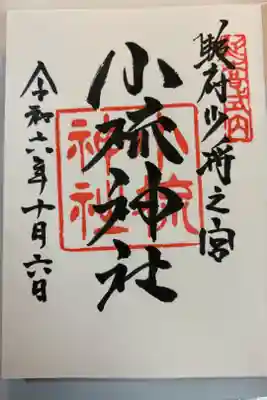 延喜式内
駿府少将之宮
小梳神社
小梳
神社
令和六年十月六日